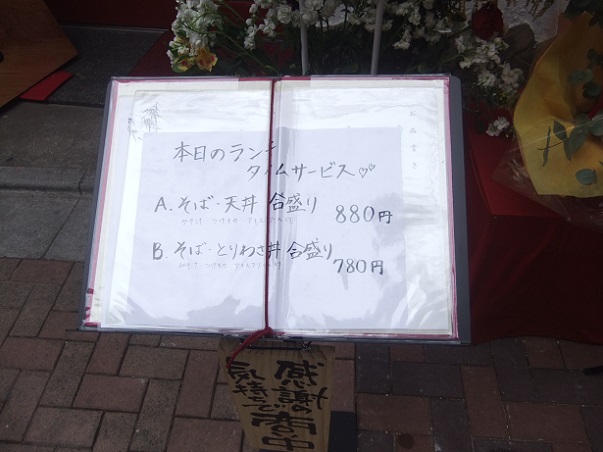 お品書き
本日のランチ
タイムサービス♡♡
A. そば・天丼 合盛り 880円
B. そば・とりわさ丼 合盛り 780円
感謝の
気持ちで
営中